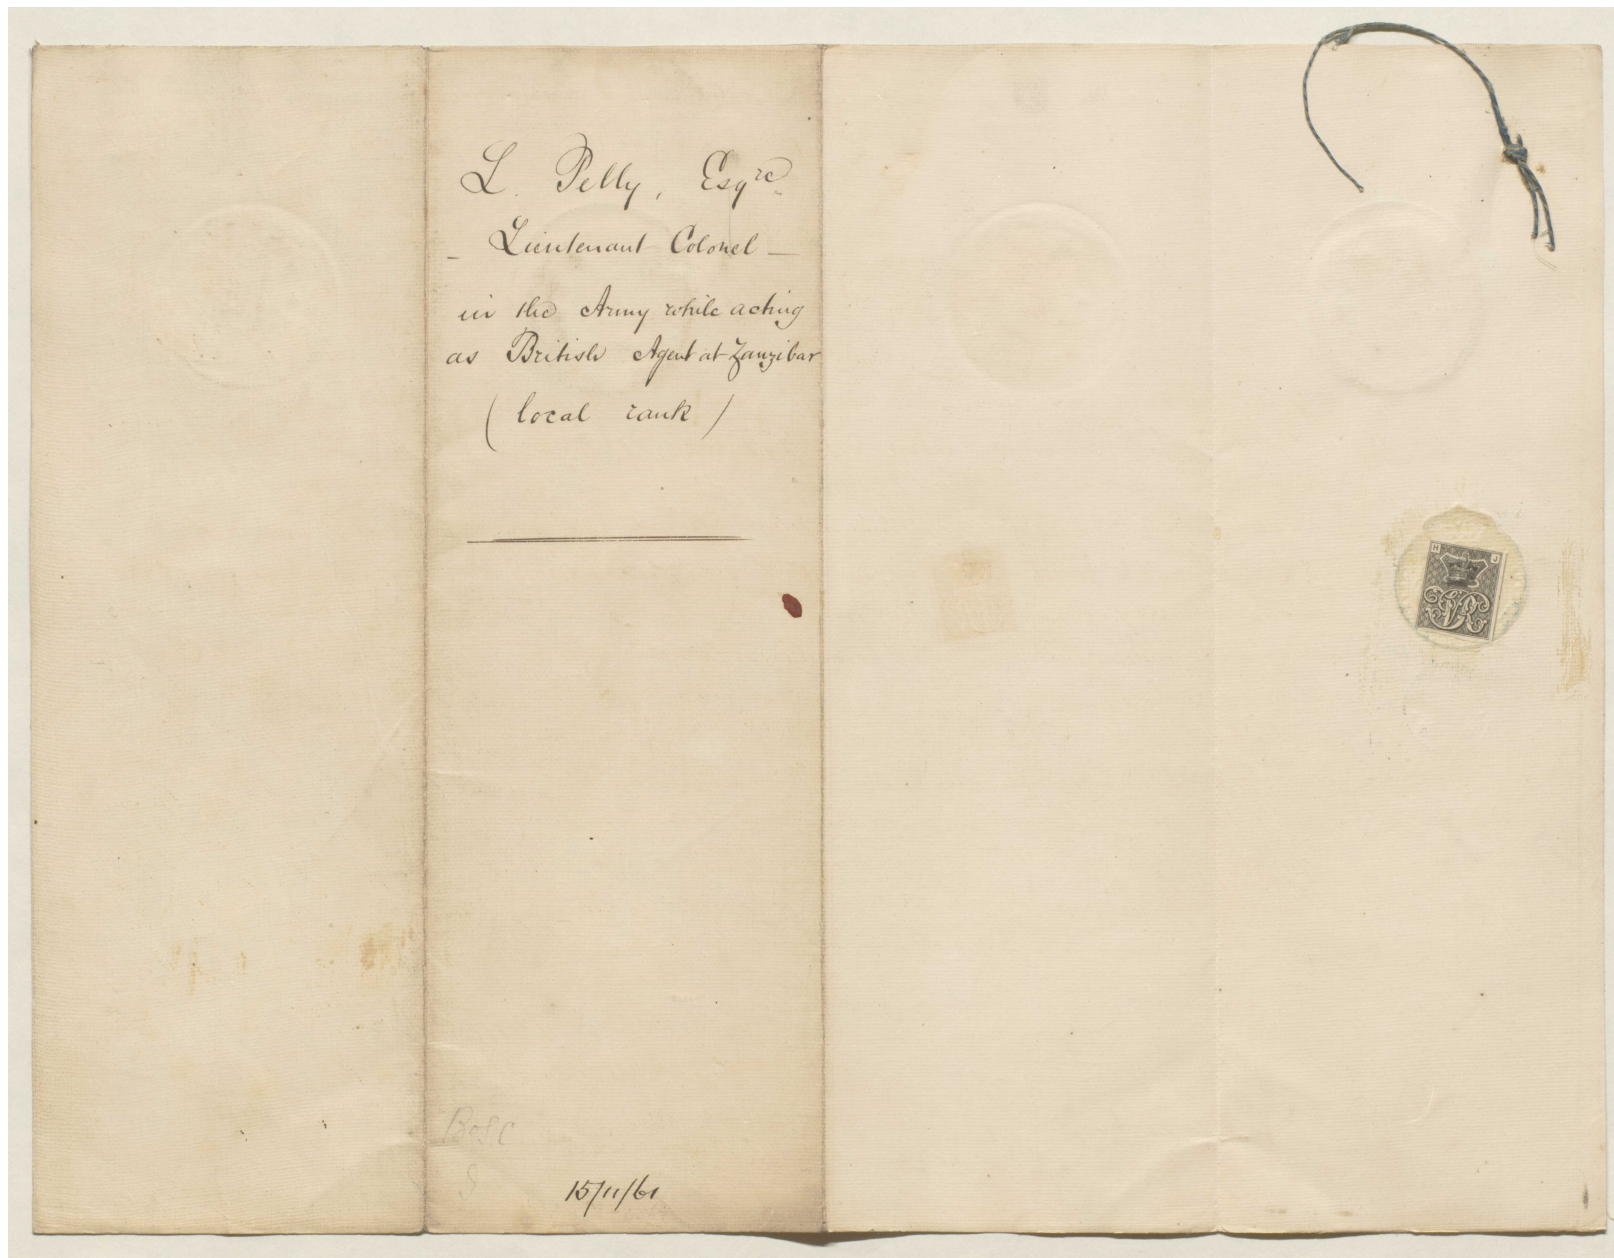 L. Pelly, Esqre
- Lieutenant Colonel -
in the Army while acting
as British Agent at Zanzibar
(local rank)
H J
VR
15/11/61